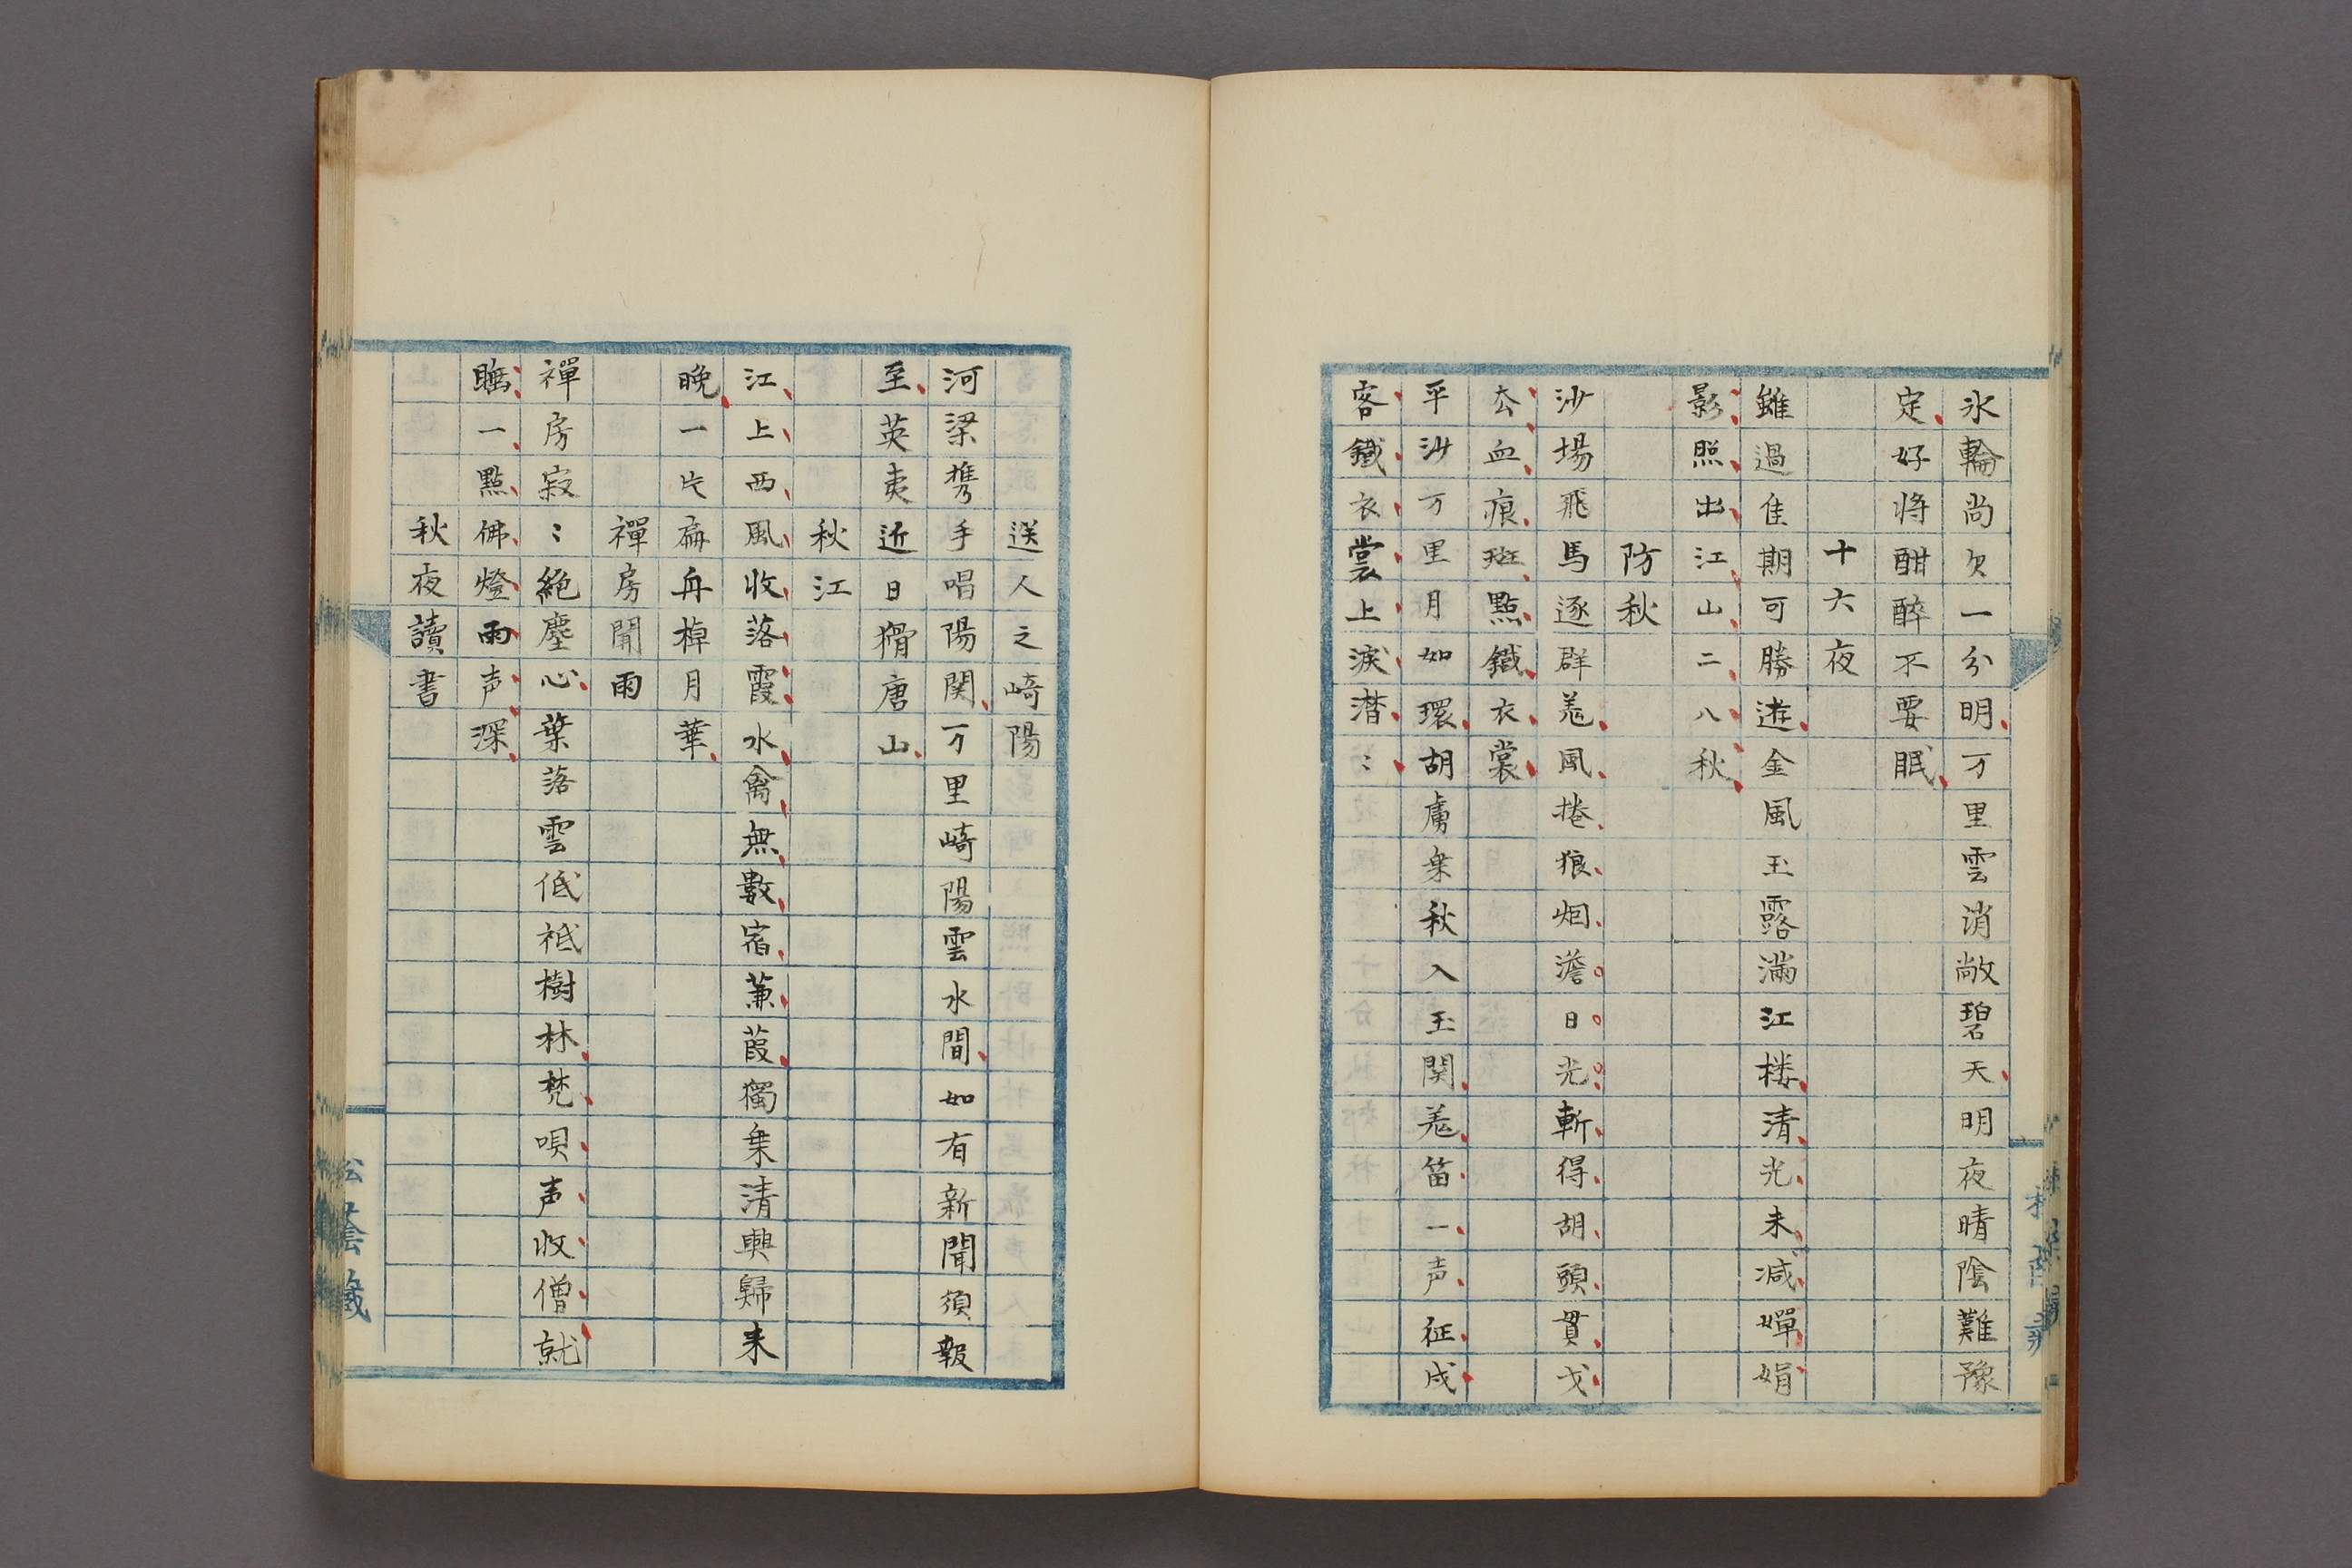 氷輪尚欠一分明万里雲消敞碧天明夜晴陰難豫
定好将酣醉不要眠
十六夜
雖過佳期可勝遊金風玉露満江楼清光未減嬋娟
影照出江山二八秋
防秋
沙場飛馬逐群羗風捲狼烟澹日光斬得胡頭貫戈
去血痕斑點鐡衣裳
平沙万里月如環胡虜乗秋入玉関羗笛一声征戍
客鐡衣裳上涙潜〻
送人之崎陽
河梁携手唱陽関万里崎陽雲水間如有新聞須報
至英夷近日猾唐山
秋江
江上西風收落霞水禽無數宿蒹葭獨乗清興歸来
晚一片扁舟棹月華
禪房聞雨
禪房寂〻絶塵心葉落雲低祇樹林梵唄声收僧就
眠一點佛燈雨声深
秋夜讀書